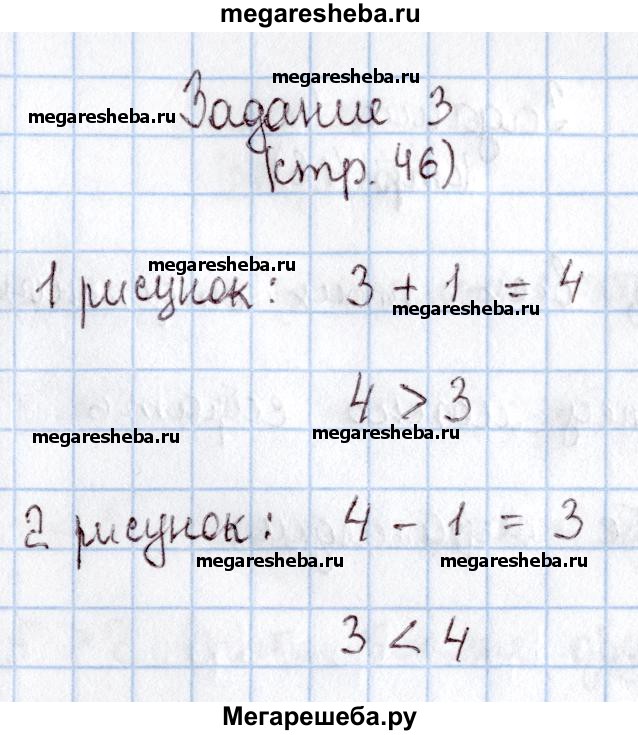 megaresheba.ru
megaresheba.ru
megaresheba.ru
Задание 3
(стр. 46)
megaresheba.ru
1 рисунок: 3 + 1 = 4
megaresheba.ru
4 > 3
megaresheba.ru
megaresheba.ru
2 рисунок: 4 - 1 = 3
megaresheba.ru
megaresheba.ru
3 < 4
Мегарешеба.ру